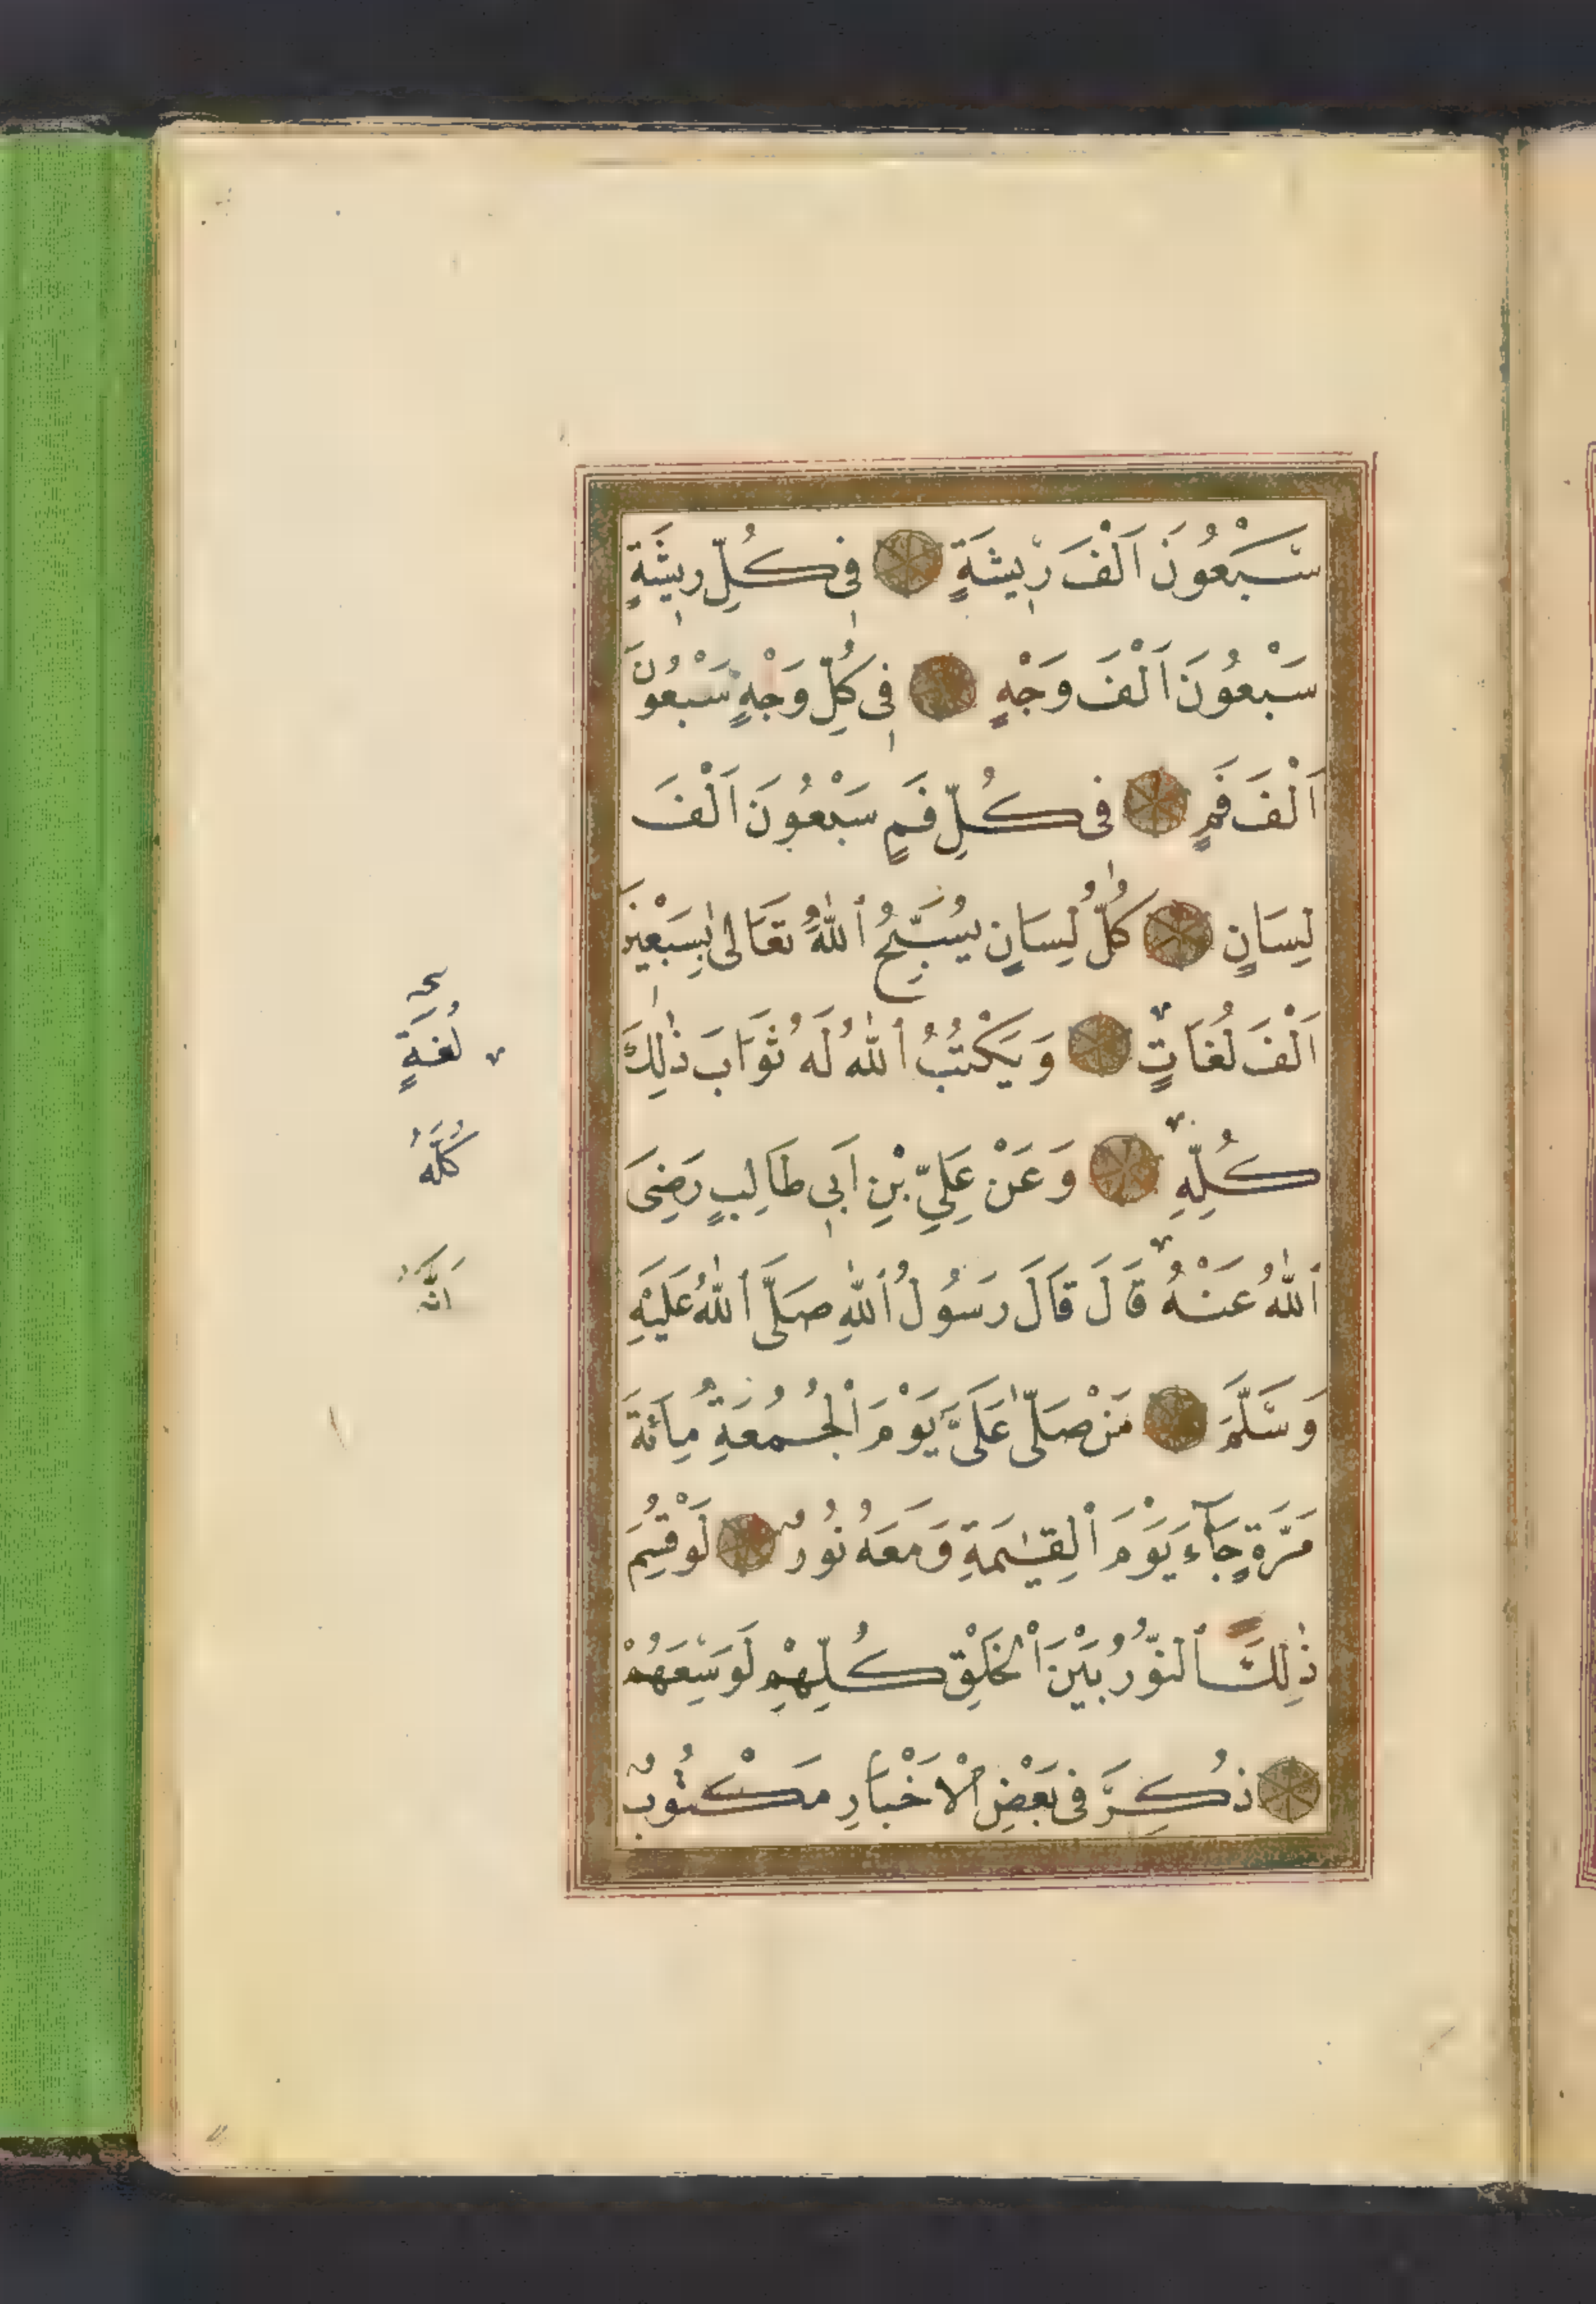 سَبْعُونَ اَلْفَ رِيشَةٍ فِى كُلِّ رِيشَةٍ
سَبْعُونَ اَلْفَ وَجْهٍ فِى كُلِّ وَجْهٍ سَبْعُونَ
اَلْفَ فَمٍ فِى كُلِّ فَمٍ سَبْعُونَ اَلْفَ
لِسَانٍ كُلُّ لِسَانٍ يُسَبِّحُ ٱللّٰهَ تَعَالٰى بِسَبْعِينَ
اَلْفَ لُغَاتٍ وَيَكْتُبُ ٱللّٰهُ لَهُ ثَوَابَ ذٰلِكَ
كُلِّهِ وَعَنْ عَلِيِّ بْنِ اَبِى طَالِبٍ رَضِىَ
ٱللّٰهُ عَنْهُ قَالَ قَالَ رَسُولُ ٱللّٰهِ صَلَّى ٱللّٰهُ عَلَيْهِ
وَسَلَّمَ مَنْ صَلّٰى عَلَىَّ يَوْمَ ٱلْجُمُعَةِ مِائَةَ
مَرَّةٍ جَآءَ يَوْمَ ٱلْقِيٰمَةِ وَمَعَهُ نُورٌ لَوْ قُسِمَ
ذٰلِكَ ٱلنُّورُ بَيْنَ ٱلْخَلْقِ كُلِّهِمْ لَوَسِعَهُمْ
ذُكِرَ فِى بَعْضِ ٱلْاَخْبَارِ مَكْتُوبٌ
لُغَةٍ
كُلَّهُ
اَنَّهُ